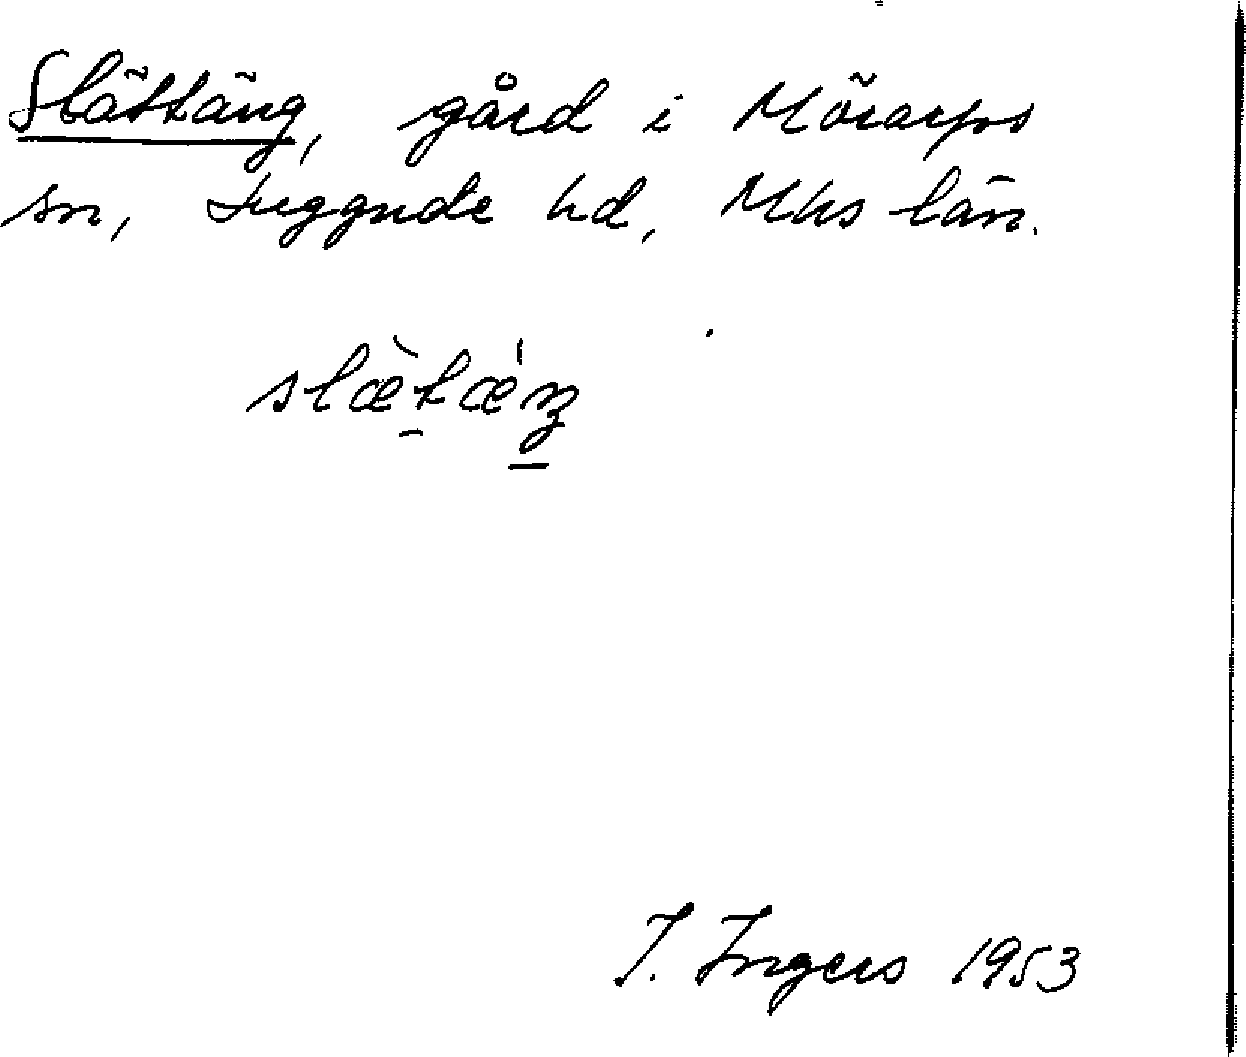 Slättäng, gård i Mörarps
sn, Luggude hd, Mhs län.
slæ̀tæ̍ŋ
I. Ingers 1953